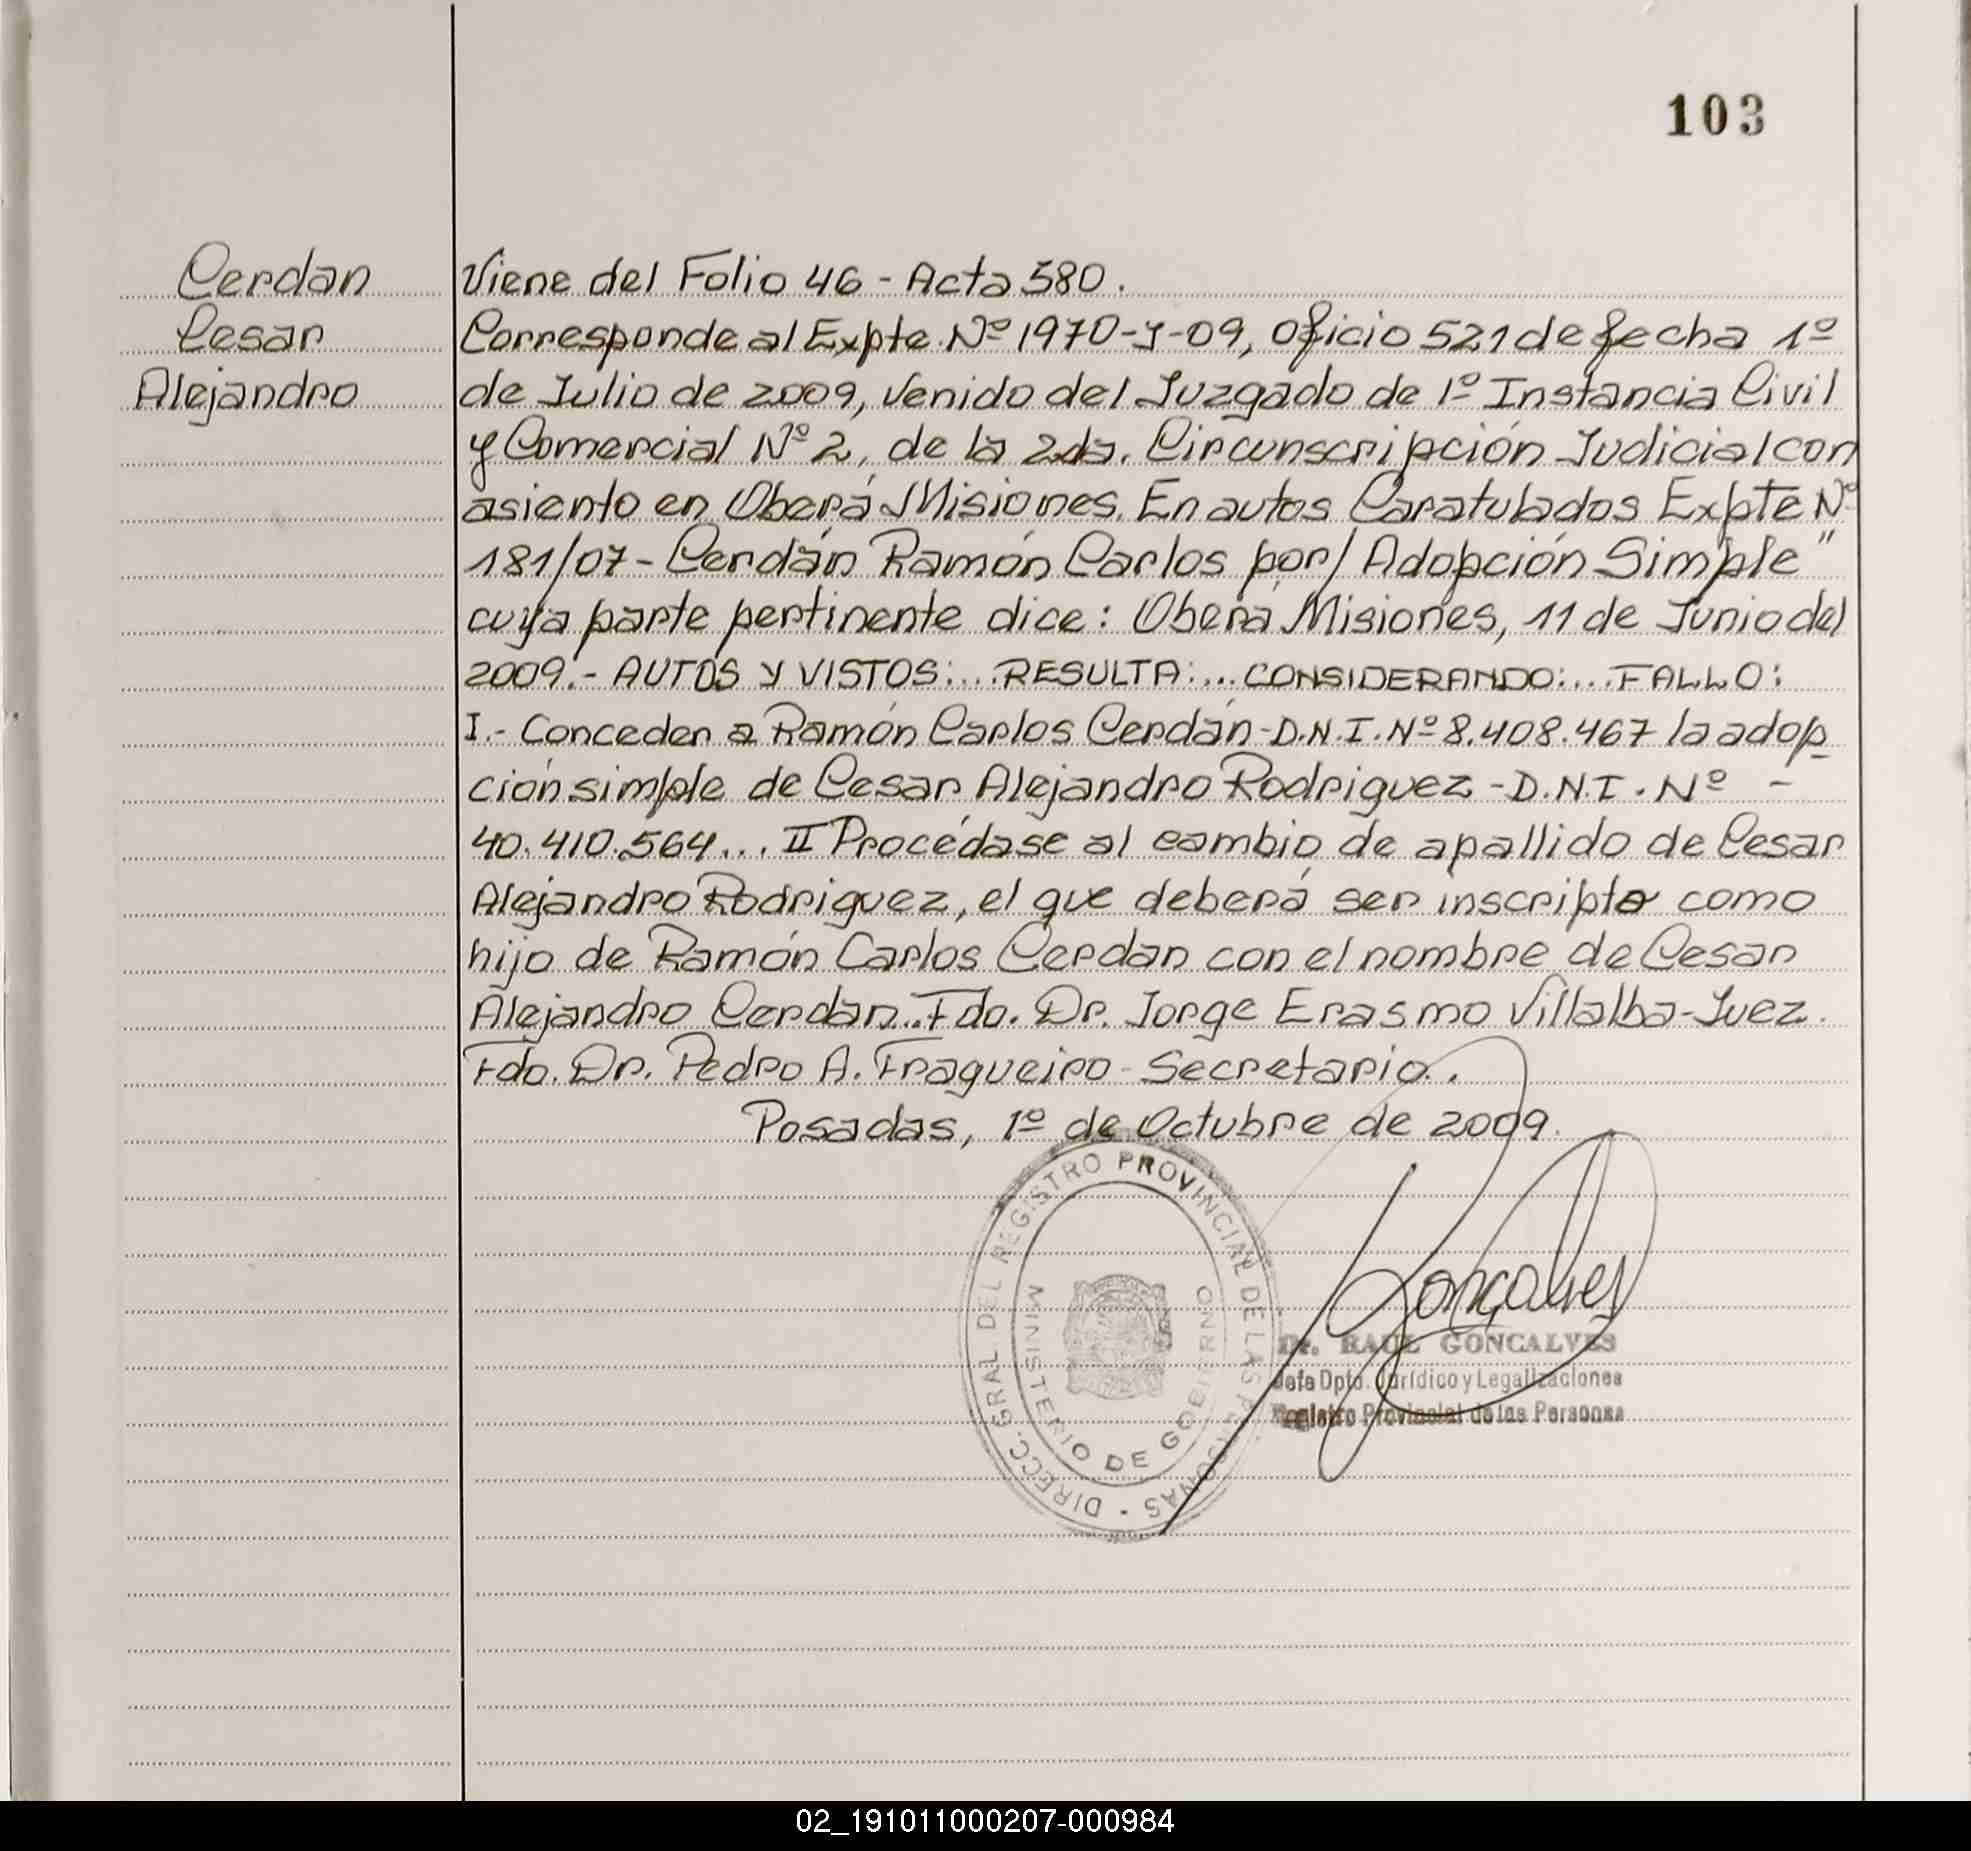 103
Cerdan
Cesar
Alejandro
Viene del Folio 46 - Acta 580.
Corresponde al Expte. Nº 1970-J-09, Oficio 521 de fecha 1º
de Julio de 2009, venido del Juzgado de 1º Instancia Civil
y Comercial Nº 2, de la 2da. Circunscripción Judicial con
asiento en Oberá Misiones. En autos Caratulados Expte Nº
181/07 - Cerdán Ramón Carlos por/ Adopción Simple"
cuya parte pertinente dice: Oberá Misiones, 11 de Junio del
2009.- AUTOS Y VISTOS:... RESULTA:... CONSIDERANDO:... FALLO:
I.- Conceder a Ramón Carlos Cerdán - D.N.I. Nº 8.408.467 la adop
ción simple de Cesar Alejandro Rodriguez - D.N.I. Nº -
40.410.564... II Procédase al cambio de apallido de Cesar
Alejandro Rodriguez, el que deberá ser inscripto como
hijo de Ramón Carlos Cerdan con el nombre de Cesar
Alejandro Cerdan... Fdo. Dr. Jorge Erasmo Villalba - Juez.
Fdo. Dr. Pedro A. Fragueiro - Secretario.
Posadas, 1º de Octubre de 2009.
DIRECC. GRAL. DEL REGISTRO PROVINCIAL DE LAS PERSONAS
MINISTERIO DE GOBIERNO
Goncalves
Dr. RAUL GONCALVES
Jefe Dpto. Jurídico y Legalizaciones
Registro Provincial de las Personas
02_191011000207-000984